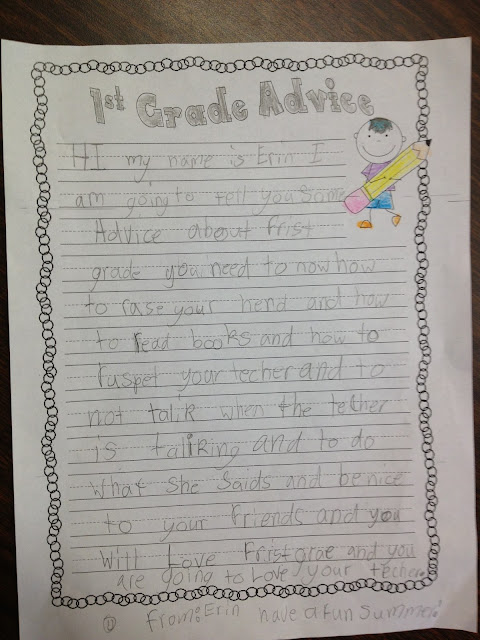 1st Grade Advice
HI my name is Erin I
am going to tell you some
Advice about frist
grade you need to now how
to rase your hend and how
to read books and how to
ruspet your techer and to
not talik when the tether
is taliking and to do
What she saids and be nice
to your friends and you
Will Love Frist grae and you
are going to Love your techer.
from: Erin have a fun summer!